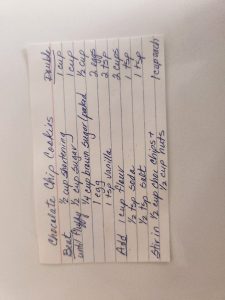 Chocolate Chip Cookies Double
Beat ½ cup shortening 1 cup
until fluffy ½ cup sugar 1 cup
¼ cup brown sugar (packed ½ cup
1 egg 2 eggs
1 tsp vanilla 2 tsp
Add 1 cup flour 2 cups
½ tsp soda 1 tsp
½ tsp salt 1 tsp
Stir in ½ cup choc chips +
½ cup nuts 1 cup each